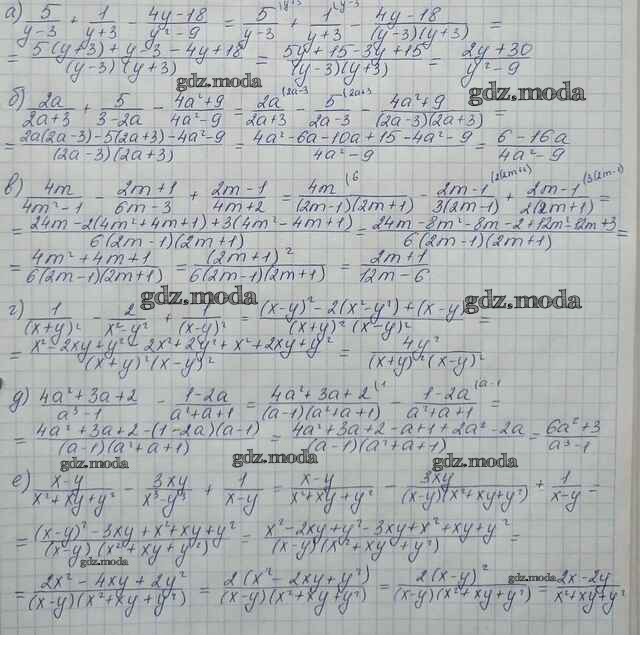 а) 5/(y-3) + 1/(y+3) - (4y-18)/(y²-9) = 5/(y-3) ⁽ʸ⁺³ + 1/(y+3) ⁽ʸ⁻³ - (4y-18)/((y-3)(y+3)) =
= (5(y+3)+y-3-4y+18)/((y-3)(y+3)) = (5y+15-3y+15)/((y-3)(y+3)) = (2y+30)/(y²-9)
gdz.moda
gdz.moda
б) 2a/(2a+3) + 5/(3-2a) - (4a²+9)/(4a²-9) = 2a/(2a+3) ⁽²ᵃ⁻³ - 5/(2a-3) ⁽²ᵃ⁺³ - (4a²+9)/((2a-3)(2a+3)) =
gdz.moda
= (2a(2a-3)-5(2a+3)-4a²-9)/((2a-3)(2a+3)) = (4a²-6a-10a+15-4a²-9)/(4a²-9) = (6-16a)/(4a²-9)
в) 4m/(4m²-1) - (2m+1)/(6m-3) + (2m-1)/(4m+2) = 4m/((2m-1)(2m+1)) ⁽⁶ - (2m-1)/(3(2m-1)) ⁽²⁽²ᵐ⁺¹⁾ + (2m-1)/(2(2m+1)) ⁽³⁽²ᵐ⁻¹⁾ =
= (24m-2(4m²+4m+1)+3(4m²-4m+1))/(6(2m-1)(2m+1)) = (24m-8m²-8m-2+12m²-12m+3)/(6(2m-1)(2m+1)) =
= (4m²+4m+1)/(6(2m-1)(2m+1)) = (2m+1)²/(6(2m-1)(2m+1)) = (2m+1)/(12m-6)
gdz.moda
gdz.moda
г) 1/(x+y)² - 2/(x²-y²) + 1/(x-y)² = ((x-y)²-2(x²-y²)+(x-y)/((x+y)²(x-y)²) =
= (x²-2xy+y²-2x²+2y²+x²+2xy+y²)/((x+y)²(x-y)²) = 4y²/((x+y)²(x-y)²)
gdz.moda
д) (4a²+3a+2)/(a³-1) - (1-2a)/(a²+a+1) = (4a²+3a+2)/((a-1)(a²+a+1)) ⁽¹ - (1-2a)/(a²+a+1) ⁽ᵃ⁻¹ =
= (4a²+3a+2-(1-2a)(a-1))/((a-1)(a²+a+1)) = (4a²+3a+2-a+1+2a²-2a)/((a-1)(a²+a+1)) = (6a²+3)/(a³-1)
gdz.moda
gdz.moda
е) (x-y)/(x²+xy+y²) - 3xy/(x³-y³) + 1/(x-y) = (x-y)/(x²+xy+y²) - 3xy/((x-y)(x²+xy+y²)) + 1/(x-y) =
= ((x-y)²-3xy+x²+xy+y²)/((x-y)(x²+xy+y²)) = (x²-2xy+y²-3xy+x²+xy+y²)/((x-y)(x²+xy+y²)) =
gdz.moda
gdz.moda
= (2x²-4xy+2y²)/((x-y)(x²+xy+y²)) = 2(x²-2xy+y²)/((x-y)(x²+xy+y²)) = 2(x-y)²/((x-y)(x²+xy+y²)) = (2x-2y)/(x²+xy+y²)